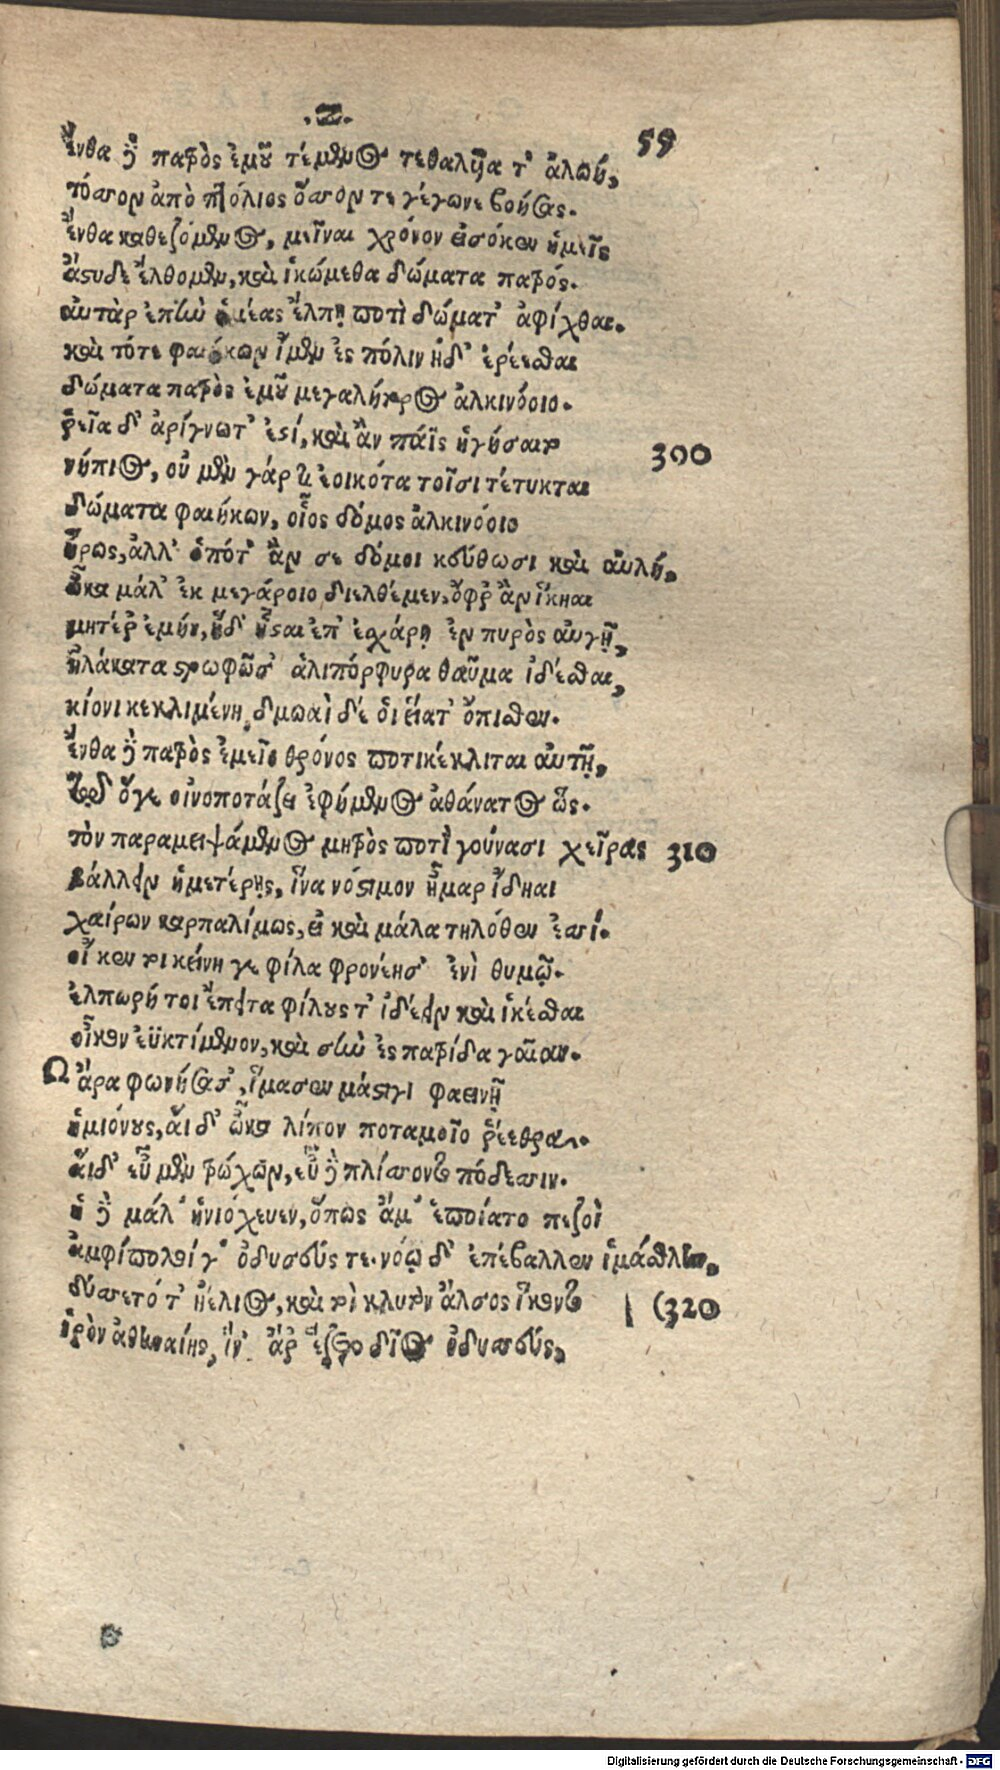 .Ζ.
59
ἔνθα δὲ πατρὸς ἐμοῦ τέμενος τεθαλῦα τ' ἀλωή,
τόσσον ἀπὸ πτόλιος ὅσσον τε γέγωνε βοήσας.
ἔνθα καθεζόμενος, μεῖναι χρόνον εἰσόκεν ἡμεῖς
ἄστυδε ἔλθομεν, καὶ ἱκώμεθα δώματα πατρός.
αὐτὰρ ἐπὴν ἡμέας ἔλπῃ ποτὶ δώματ' ἀφίχθαι.
καὶ τότε φαιήκων ἴμεν ἐς πόλιν ἠδ' ἐρέεσθαι
δώματα πατρὸς ἐμοῦ μεγαλήτορος ἀλκινόοιο.
ῥεῖα δ' ἀρίγνωτ' ἐστί, καὶ ἂν πάϊς ἡγήσαιτο
300
νήπιος, οὐ μὲν γάρ τι ἐοικότα τοῖσι τέτυκται
δώματα φαιήκων, οἷος δόμος ἀλκινόοιο
ἥρως, ἀλλ' ὁπότ' ἄν σε δόμοι κεύθωσι καὶ αὐλή,
ὦκα μάλ' ἐκ μεγάροιο διελθέμεν, ὄφρ' ἂν ἵκηαι
μητέρ' ἐμήν, ἡδ' ἧσται ἐπ' ἐσχάρῃ ἐν πυρὸς αὐγῇ,
ἠλάκατα στρωφῶσ' ἁλιπόρφυρα θαῦμα ἰδέσθαι,
κίονι κεκλιμένη, δμωαὶ δέ οἱ εἵατ' ὄπισθεν.
ἔνθα δὲ πατρὸς ἐμεῖο θρόνος ποτικέκλιται αὐτῇ,
τῷ ὅγε οἰνοποτάζει ἐφήμενος ἀθάνατος ὥς.
τὸν παραμειψάμενος μητρὸς ποτὶ γούνασι χεῖρας
310
βάλλειν ἡμετέρης, ἵνα νόστιμον ἦμαρ ἴδηαι
χαίρων καρπαλίμως, εἰ καὶ μάλα τηλόθεν ἐσσί.
εἴ κεν τοι κείνη γε φίλα φρονέησ' ἐνὶ θυμῷ.
ἐλπωρή τοι ἔπειτα φίλους τ' ἰδέειν καὶ ἱκέσθαι
οἶκον ἐϋκτίμενον, καὶ σὴν ἐς πατρίδα γαῖαν.
Ω ἄρα φωνήσασ', ἵμασεν μάστιγι φαεινῇ
ἡμιόνους, αἱ δ' ὦκα λίπον ποταμοῖο ῥέεθρα.
αἱ δ' εὖ μὲν τρώχων, εὖ δὲ πλίσσοντο πόδεσσιν.
ἡ δὲ μάλ' ἡνιόχευεν, ὅπως ἅμ' ἑποίατο πεζοὶ
ἀμφίπολοί γ' ὀδυσεύς τε. νόῳ δ' ἐπέβαλλεν ἱμάσθλην,
δύσετό τ' ἠέλιος, καὶ τοὶ κλυτὸν ἄλσος ἵκοντο
(320
ἱρὸν ἀθηναίης, ἵν' ἄρ' ἕζετο δῖος ὀδυσσεύς,
Digitalisierung gefördert durch die Deutsche Forschungsgemeinschaft - DFG